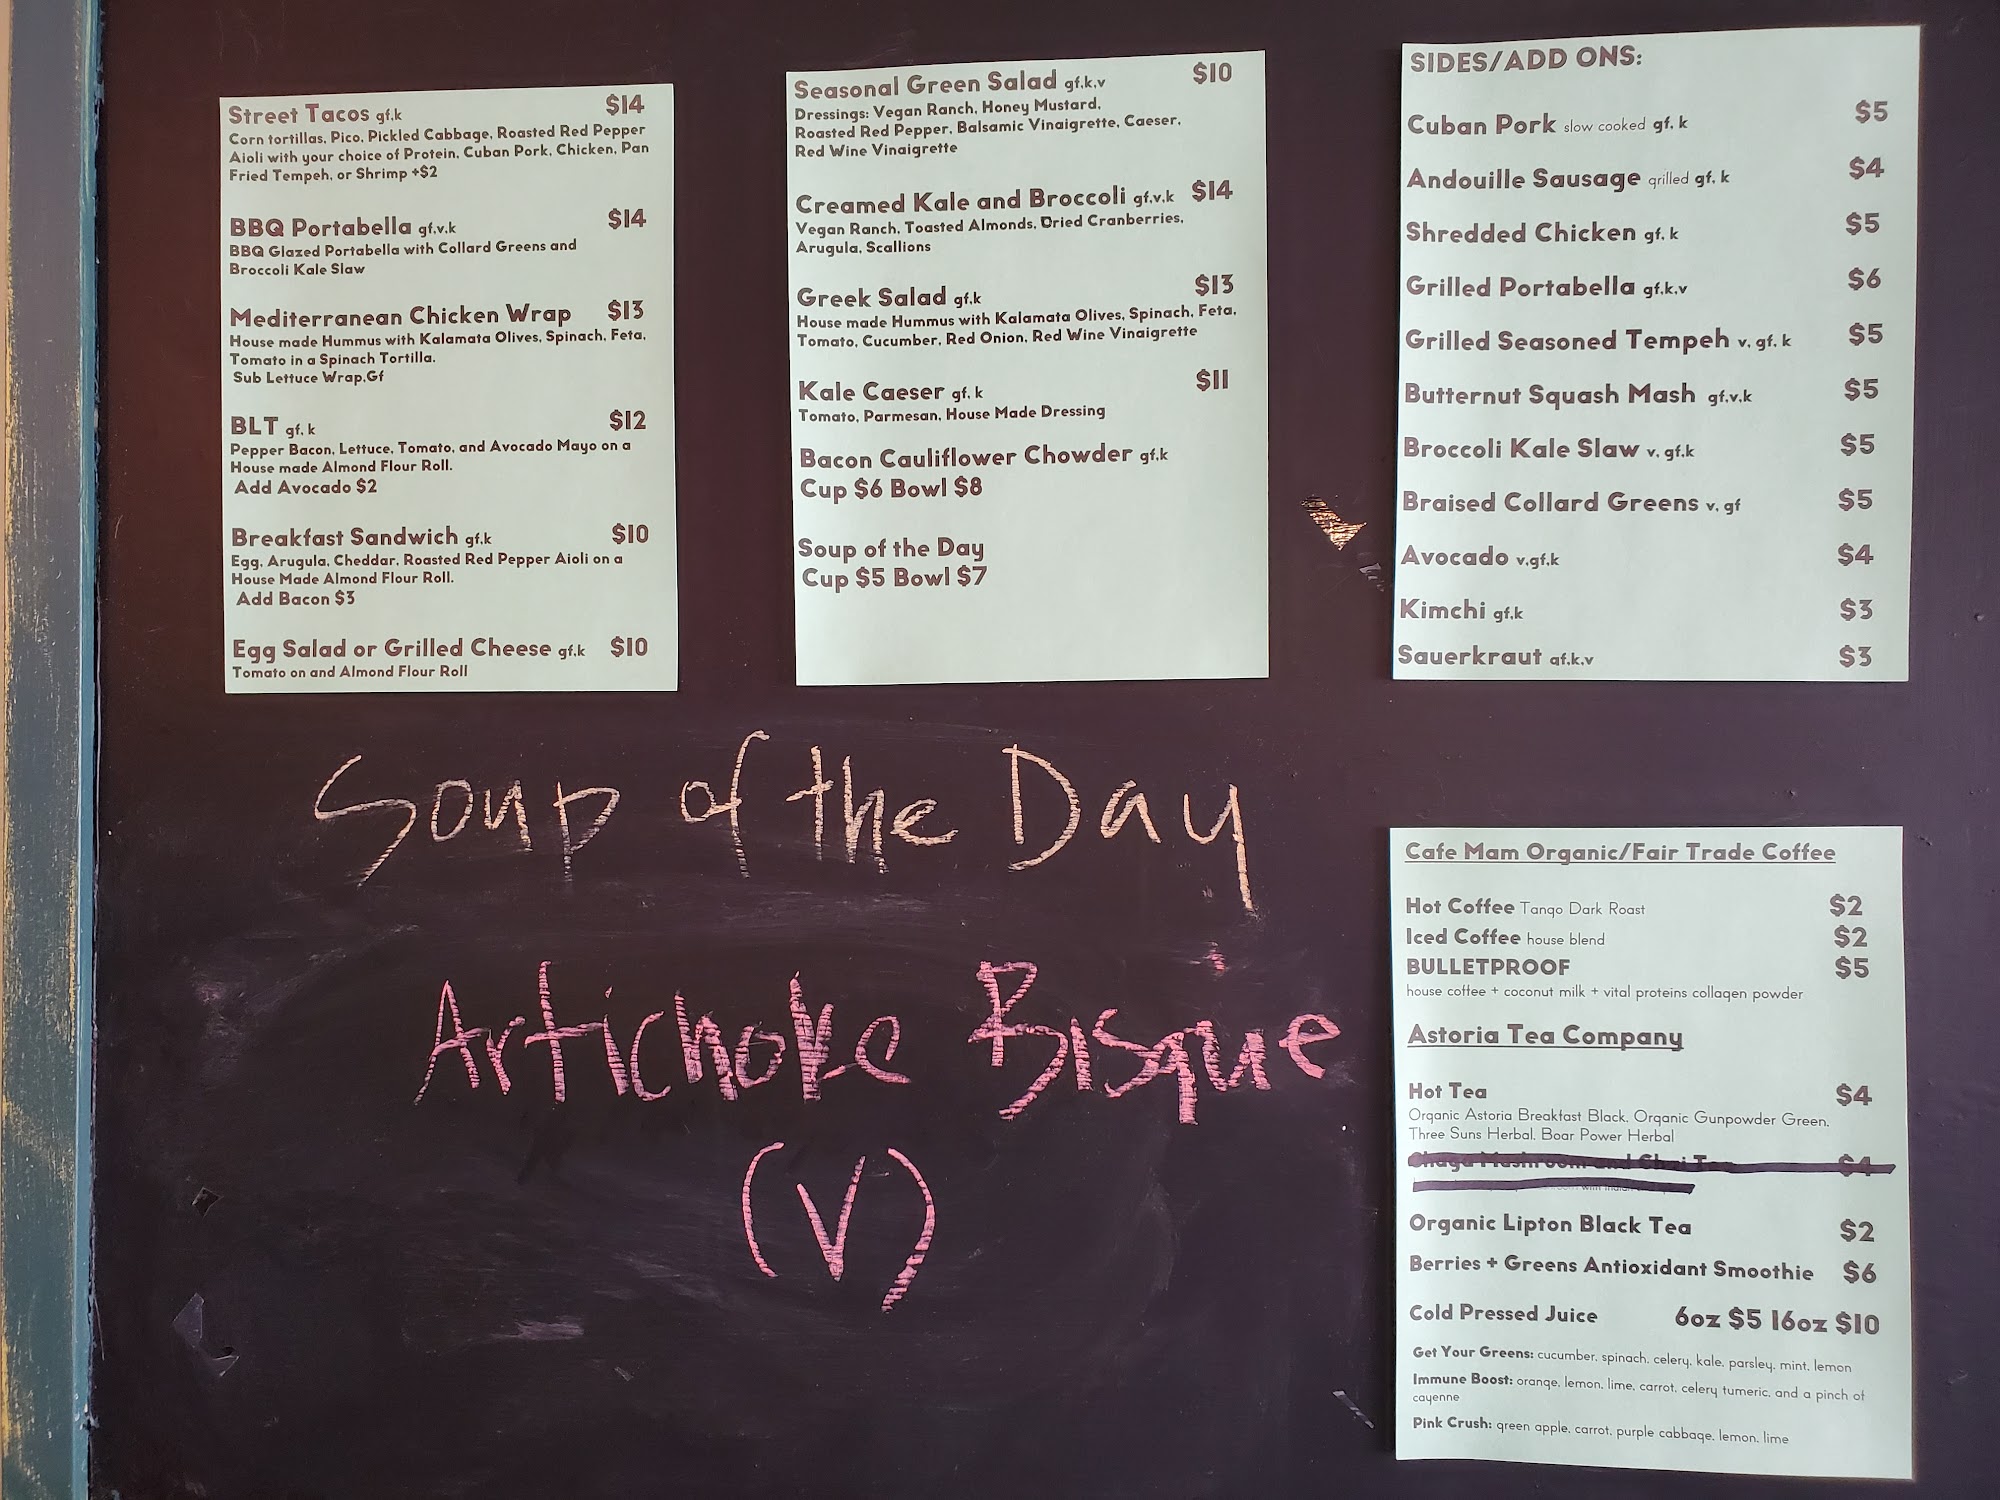 Street Tacos gf,k $14
Corn tortillas, Pico, Pickled Cabbage, Roasted Red Pepper
Aioli with your choice of Protein, Cuban Pork, Chicken, Pan
Fried Tempeh, or Shrimp +$2
BBQ Portabella gf,v,k $14
BBQ Glazed Portabella with Collard Greens and
Broccoli Kale Slaw
Mediterranean Chicken Wrap $13
House made Hummus with Kalamata Olives, Spinach, Feta,
Tomato in a Spinach Tortilla.
Sub Lettuce Wrap,Gf
BLT gf, k $12
Pepper Bacon, Lettuce, Tomato, and Avocado Mayo on a
House made Almond Flour Roll.
Add Avocado $2
Breakfast Sandwich gf,k $10
Egg, Arugula, Cheddar, Roasted Red Pepper Aioli on a
House Made Almond Flour Roll.
Add Bacon $3
Egg Salad or Grilled Cheese gf,k $10
Tomato on and Almond Flour Roll
Seasonal Green Salad gf,k,v $10
Dressings: Vegan Ranch, Honey Mustard,
Roasted Red Pepper, Balsamic Vinaigrette, Caeser,
Red Wine Vinaigrette
Creamed Kale and Broccoli gf,v,k $14
Vegan Ranch, Toasted Almonds, Dried Cranberries,
Arugula, Scallions
Greek Salad gf,k $13
House made Hummus with Kalamata Olives, Spinach, Feta,
Tomato, Cucumber, Red Onion, Red Wine Vinaigrette
Kale Caeser gf, k $11
Tomato, Parmesan, House Made Dressing
Bacon Cauliflower Chowder gf,k
Cup $6 Bowl $8
Soup of the Day
Cup $5 Bowl $7
SIDES/ADD ONS:
Cuban Pork slow cooked gf, k $5
Andouille Sausage grilled gf, k $4
Shredded Chicken gf, k $5
Grilled Portabella gf,k,v $6
Grilled Seasoned Tempeh v, gf, k $5
Butternut Squash Mash gf,v,k $5
Broccoli Kale Slaw v, gf,k $5
Braised Collard Greens v, gf $5
Avocado v,gf,k $4
Kimchi gf,k $3
Sauerkraut gf,k,v $3
Soup of the Day
Artichoke Bisque
(V)
Cafe Mam Organic/Fair Trade Coffee
Hot Coffee Tango Dark Roast $2
Iced Coffee house blend $2
BULLETPROOF $5
house coffee + coconut milk + vital proteins collagen powder
Astoria Tea Company
Hot Tea $4
Organic Astoria Breakfast Black, Organic Gunpowder Green,
Three Suns Herbal, Boar Power Herbal
Chaga Mushroom and Chai Tea $4
with
Organic Lipton Black Tea $2
Berries + Greens Antioxidant Smoothie $6
Cold Pressed Juice 6oz $5 16oz $10
Get Your Greens: cucumber, spinach, celery, kale, parsley, mint, lemon
Immune Boost: orange, lemon, lime, carrot, celery tumeric, and a pinch of
cayenne
Pink Crush: green apple, carrot, purple cabbage, lemon, lime